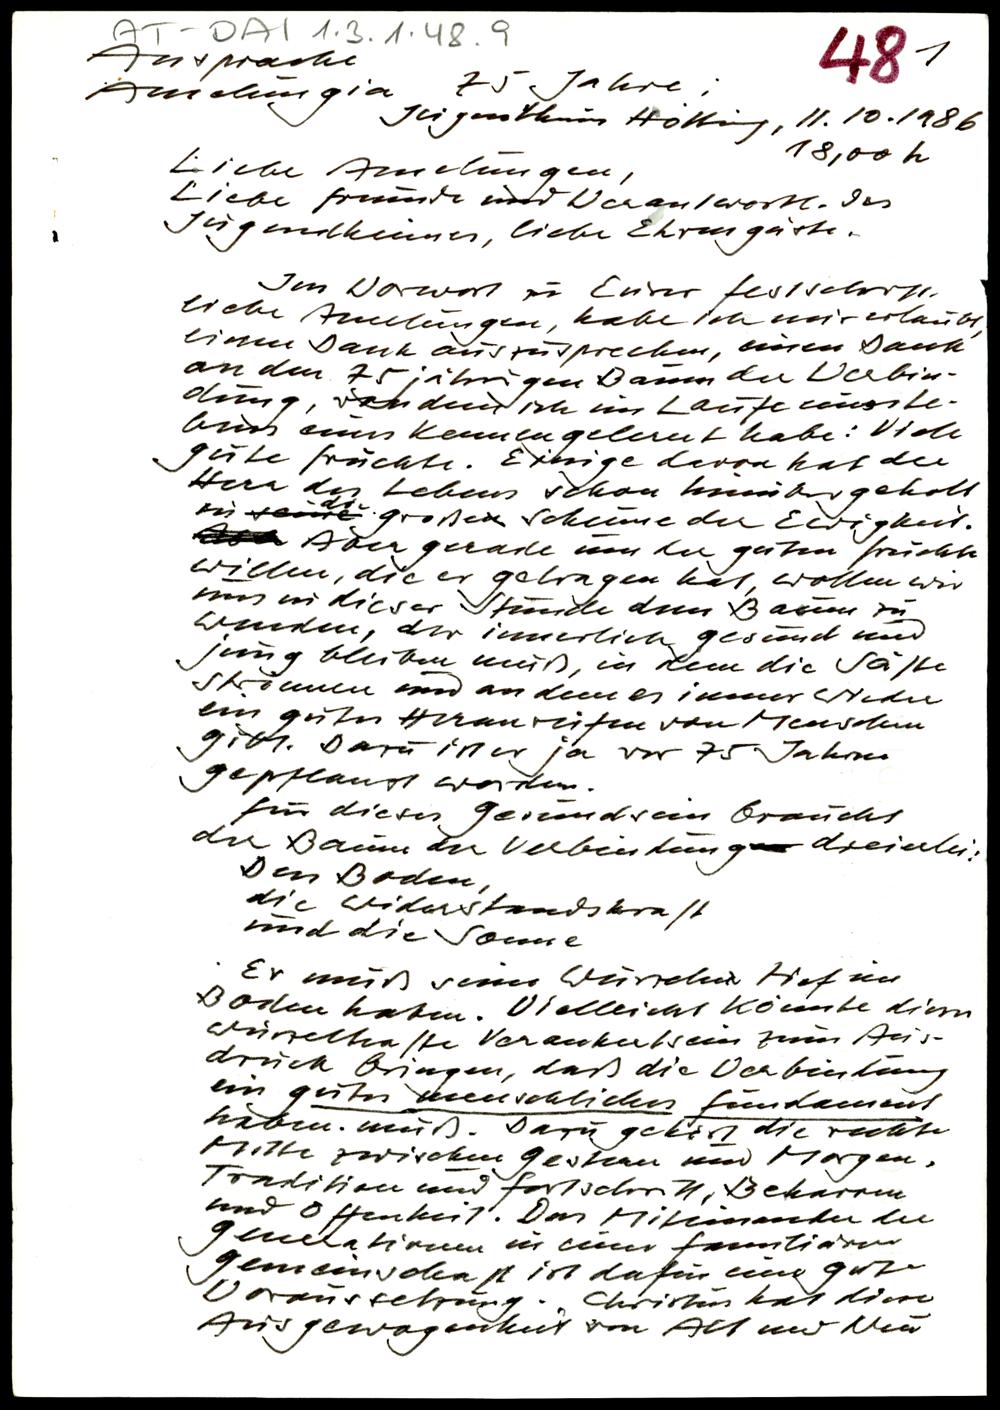 AT-DAI 1.3.1.48.9
48 1
Ansprache
Amelungia 75 Jahre;
Jugendheim Hötting, 11.10.1986
18,00 h
Liebe Amelungen,
Liebe Freunde und Verantwortl. des
Jugendheimes, liebe Ehrengäste.
Im Vorwort zu Eurer Festschrift,
liebe Amelungen, habe ich mir erlaubt,
einen Dank auszusprechen, einen Dank
an den 75 jährigen Baum der Verbin-
dung, von dem ich im Laufe unseres Le-
bens eines kennengelernt habe: Viele
gute Früchte. Einige davon hat der
Herr des Lebens schon hinübergeholt
in seine die großen Scheune der Ewigkeit.
Aber gerade um der guten Früchte
willen, die er getragen hat, wollen wir
uns in dieser Stunde dem Baum zu
wenden, der innerlich gesund und
jung bleiben muß, in dem die Säfte
strömen und an dem es immer wieder
ein gutes Heranreifen von Menschen
gibt. Dazu ist er ja vor 75 Jahren
gepflanzt worden.
Für dieses Gesundsein braucht
der Baum der Verbindung dreierlei:
Den Boden,
die Widerstandskraft
und die Sonne
Er muß seine Wurzeln tief im
Boden haben. Vielleicht könnte dieses
wurzelhafte Verankertsein zum Aus-
druck bringen, daß die Verbindung
ein gutes menschliches Fundament
haben muß. Dazu gehört die rechte
Mitte zwischen Gestern und Morgen,
Tradition und Fortschritt, Beharren
und Offenheit. Das Miteinander der
Generationen in einer familiären
Gemeinschaft ist dafür eine gute
Voraussetzung. Christus hat diese
Ausgewogenheit von Alt und Neu